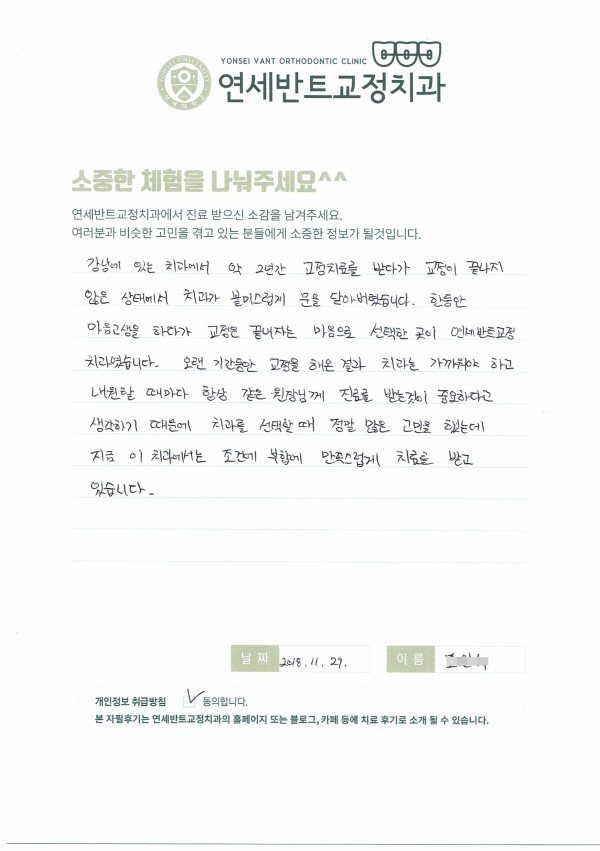 YONSEI VANT ORTHODONTIC CLINIC
연세반트교정치과
소중한 체험을 나눠주세요^^
연세반트교정치과에서 진료 받으신 소감을 남겨주세요.
여러분과 비슷한 고민을 겪고 있는 분들에게 소중한 정보가 될것입니다.
강남에 있는 치과에서 약 2년간 교정치료를 받다가 교정이 끝나지
않은 상태에서 치과가 볼미스럽게 문을 닫아버렸습니다. 한동안
마음고생을 하다가 교정은 끝내자는 마음으로 선택한 곳이 연세반트교정
치과였습니다. 오랜 기간동안 교정을 해온 결과 치과는 가까워야 하고
내원할 때마다 항상 같은 원장님께 진료를 받는것이 중요하다고
생각하기 때문에 치과를 선택할때 정말 많은 고민을 했는데
지금 이 치과에서는 조건에 부합에 만족스럽게 치료를 받고
있습니다.
날 짜 2018. 11. 29. 이 름
개인정보 취급방침 동의합니다.
본 자필후기는 연세반트교정치과의 홈페이지 또는 블로그, 카페 등에 치료 후기로 소개 될 수 있습니다.